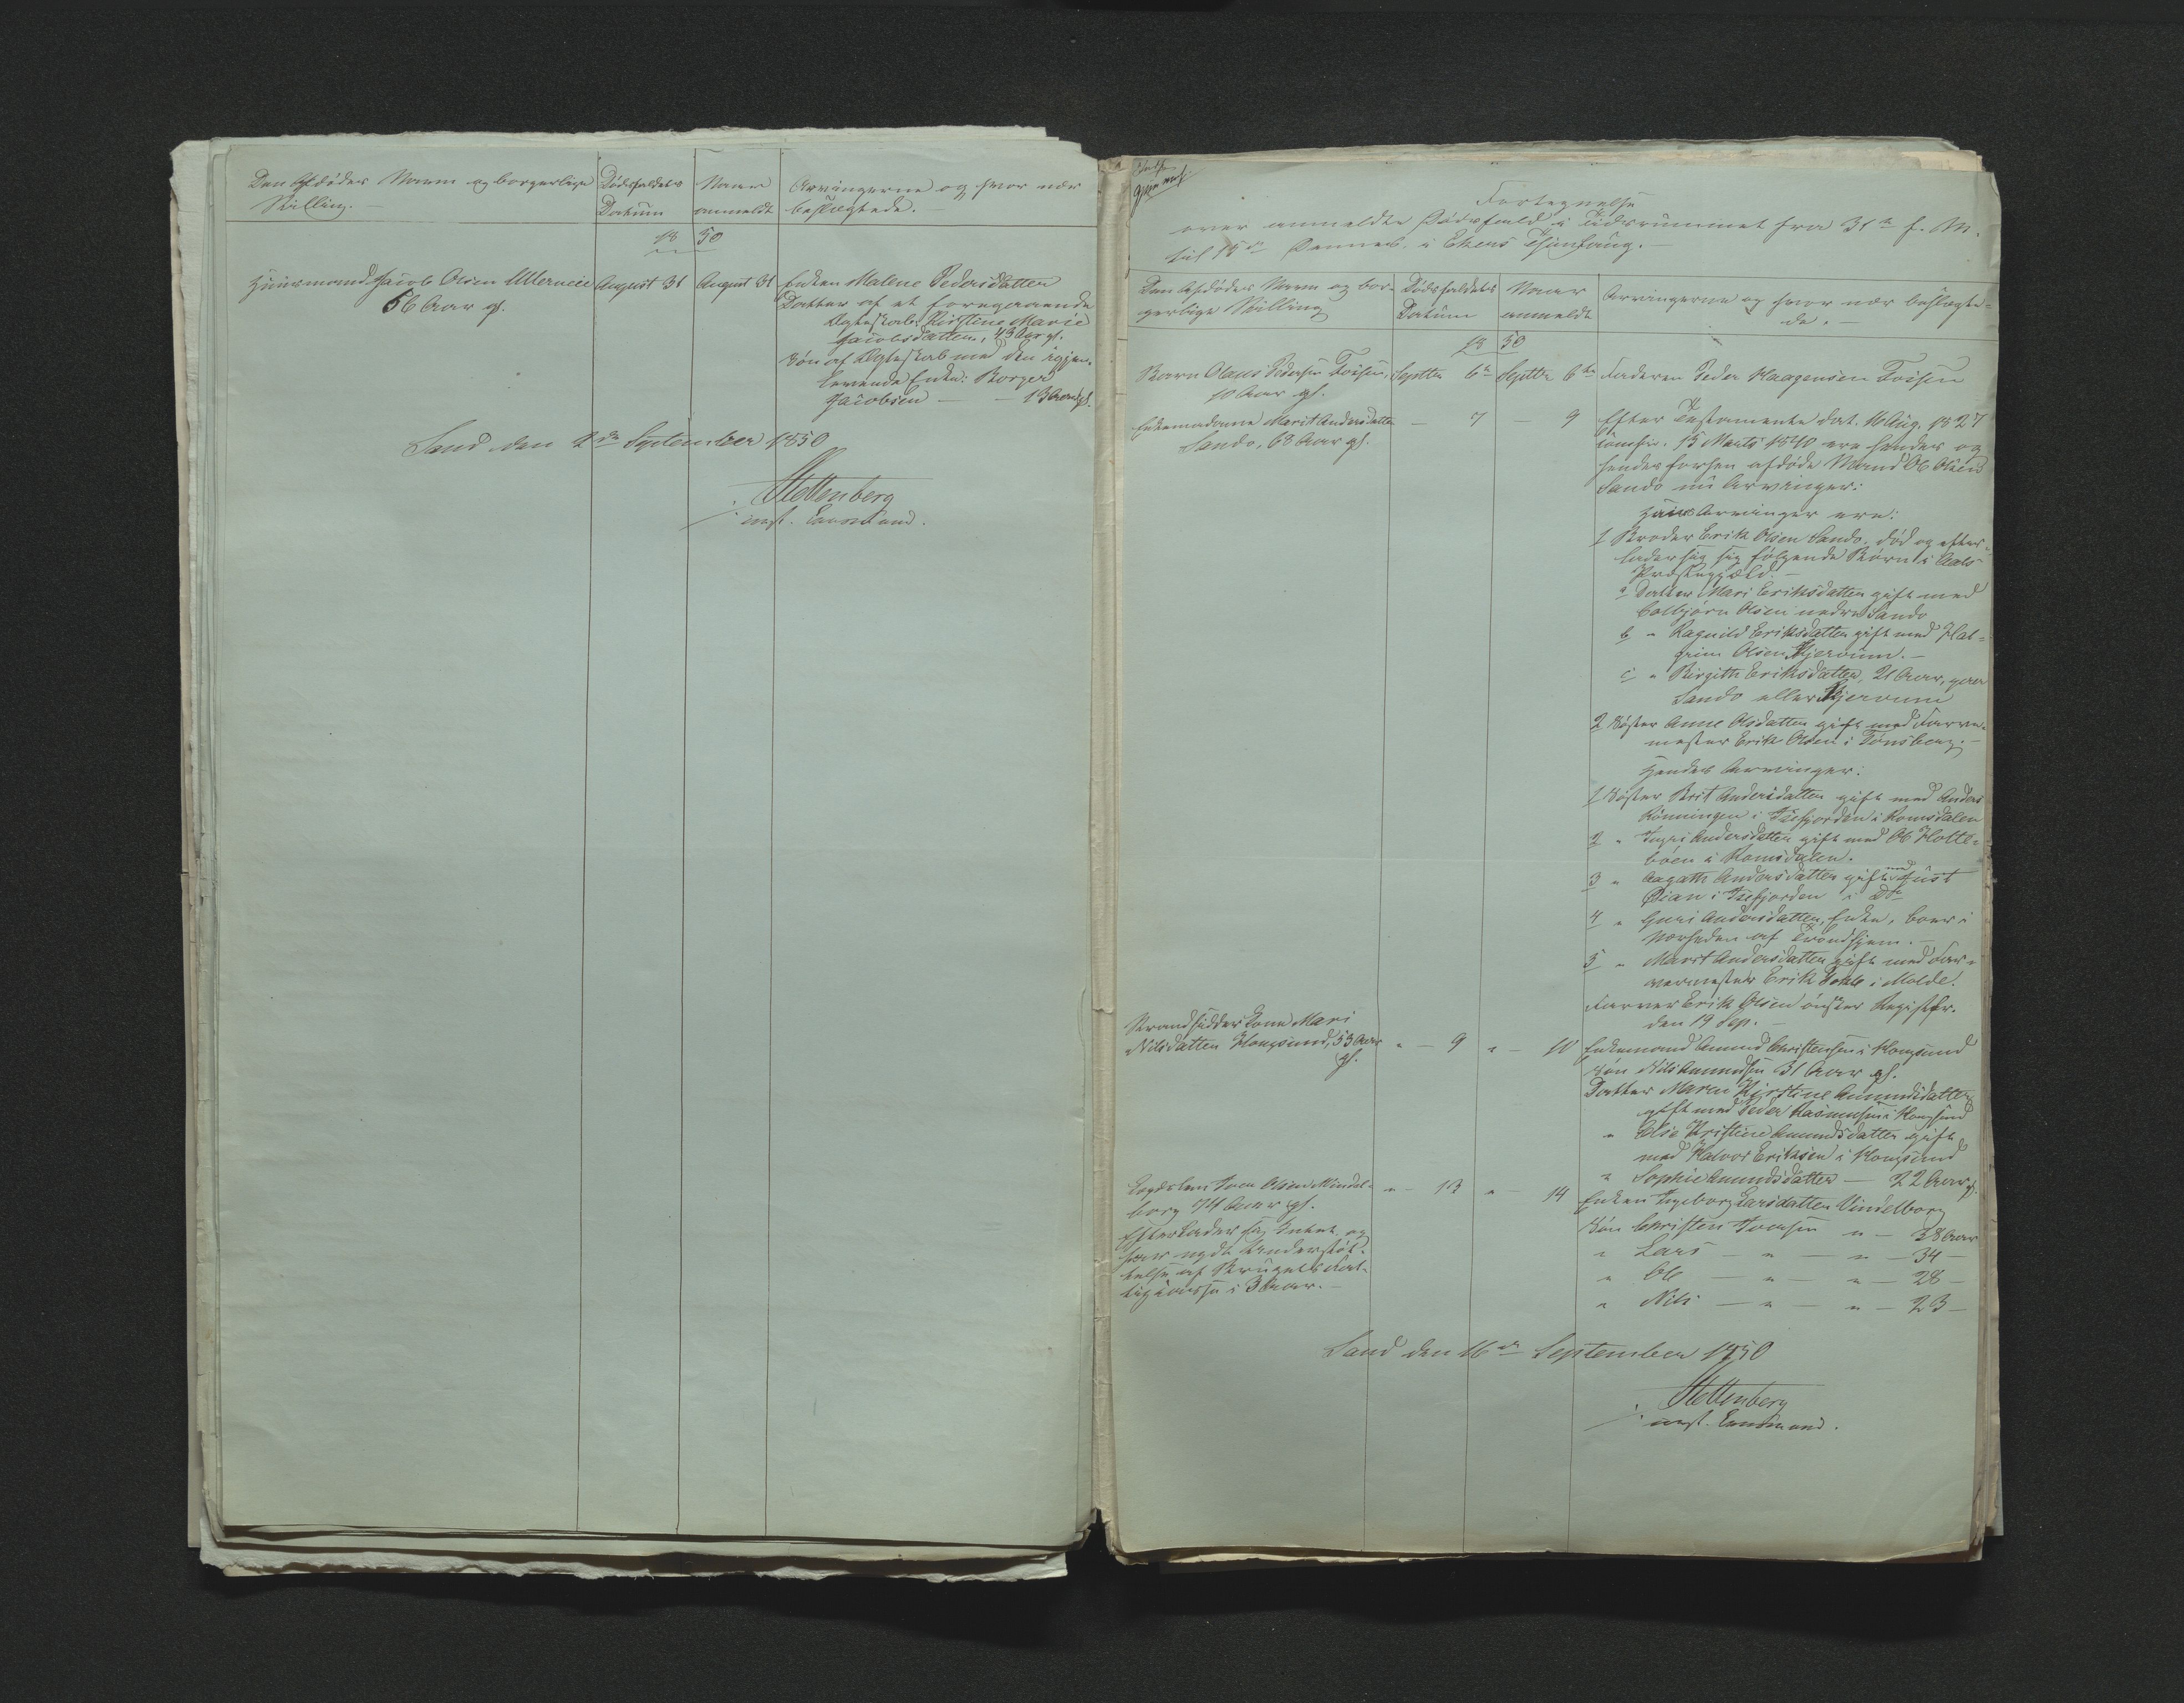 Den Afdødes Navn og borgerlige
Stilling. —
Dødsfaldets
Datum
Naar
anmeldt
Arvingerne og hvor nær
beslægtede. —
18 50
Huusmand Jacob Olsen Ullerneie
56 Aar gl.
August 31
August 31
Enken Malene Pedersdatten
Datter af et foregaaende
Ægteskab: Kirstine Marie
Jacobsdatten, 43 Aar gl.
Søn af Ægteskab med den igjen-
levende Enke: Borger
Jacobsen — — 13 Aar gl.
Sand den 2den September 1850
Stoltenberg
const. Lensmand.
Fortegnelse
over anmeldte Dødsfald i Tidsrummet fra 31te f. M.
til 15de Dennes i Ekers Thinglaug. —
Den Afdødes Navn og bor-
gerlige Stilling
Dødsfaldets
Datum
Naar
anmeldt
Arvingerne og hvor nær beslægte-
de. —
18 50
Barn Olaus Pedersen Fossen,
10 Aar gl.
Septbr 6te
Septbr 6te
Faderen Peder Haagensen Fossen
Enkemadame Marit Andersdatten
Sando, 68 Aar gl.
— 7
— 9
Efter Testamente dat. 16 Aug. 1827
15 Marts 1840 ere hendes og
hendes forhen afdøde Mand Ole Olsen
Sando nu Arvinger:
Hans Arvinger ere:
1 Broder Erik Olsen Sando, død og efter-
lader sig følgende Børn i Aals
Præstegjæld: —
a Datter Mari Eriksdatten gift med
Colbjørn Olsen nedre Sando
b " Ragnild Eriksdatten gift med Hal-
grim Olsen Kjervum. —
c " Birgith Eriksdatten, 21 Aar, paa
Sando eller Kjervum
2 Søster Anne Olsdatten gift med Farve-
mester Erik Olsen i Tønsberg. —
Hendes Arvinger:
1 Søster Brit Andersdatten gift med Anders
Rønningen i Isefjorden i Romsdalen
2 " Ingri Andersdatten gift med Ole Holte-
bøen i Romsdalen.
3 " Aagath Andersdatten gift med Just
Øian i Isefjorden i Do
4 " Guri Andersdatten, Enke, boer i
Nærheden af Trondhjem. —
5 " Marit Andersdatten gift med Far-
vermester Erik Dahle i Molde.
Farver Erik Olsen ønsker Registr.
den 19 Sep. —
Strandsidder Kone Mari
Nilsdatten Hougsund, 53 Aar
gl.
" — 9
" — 10
Enkemand Amund Christensen i Hougsund
Søn Nils Amundsen 31 Aar gl.
Datter Maren Kirstine Amundsdatten
gift med Peder Rasmussen i Hougsund
" Else Kristine Amundsdatten gift
med Halvor Eriksen i Hougsund
" Sophie Amundsdatter — 22 Aar gl.
Lægdslem Iver Olsen Vindel-
borg 74 Aar gl.
Efterlader sig Intet og
har nydt Understøt-
telse af Brugets Fat-
tigkasse i 3 Aar. —
" — 13
" — 14
Enken Ingeborg Larsdatten Vindelborg
Søn Christen Iversen " — 38 Aar
" Lars — " — " — 34 —
" Ole — " — " — 28 —
" Nils — " — " — 23 —
Sand den 16de September 1850
Stoltenberg
const. Lensmand.